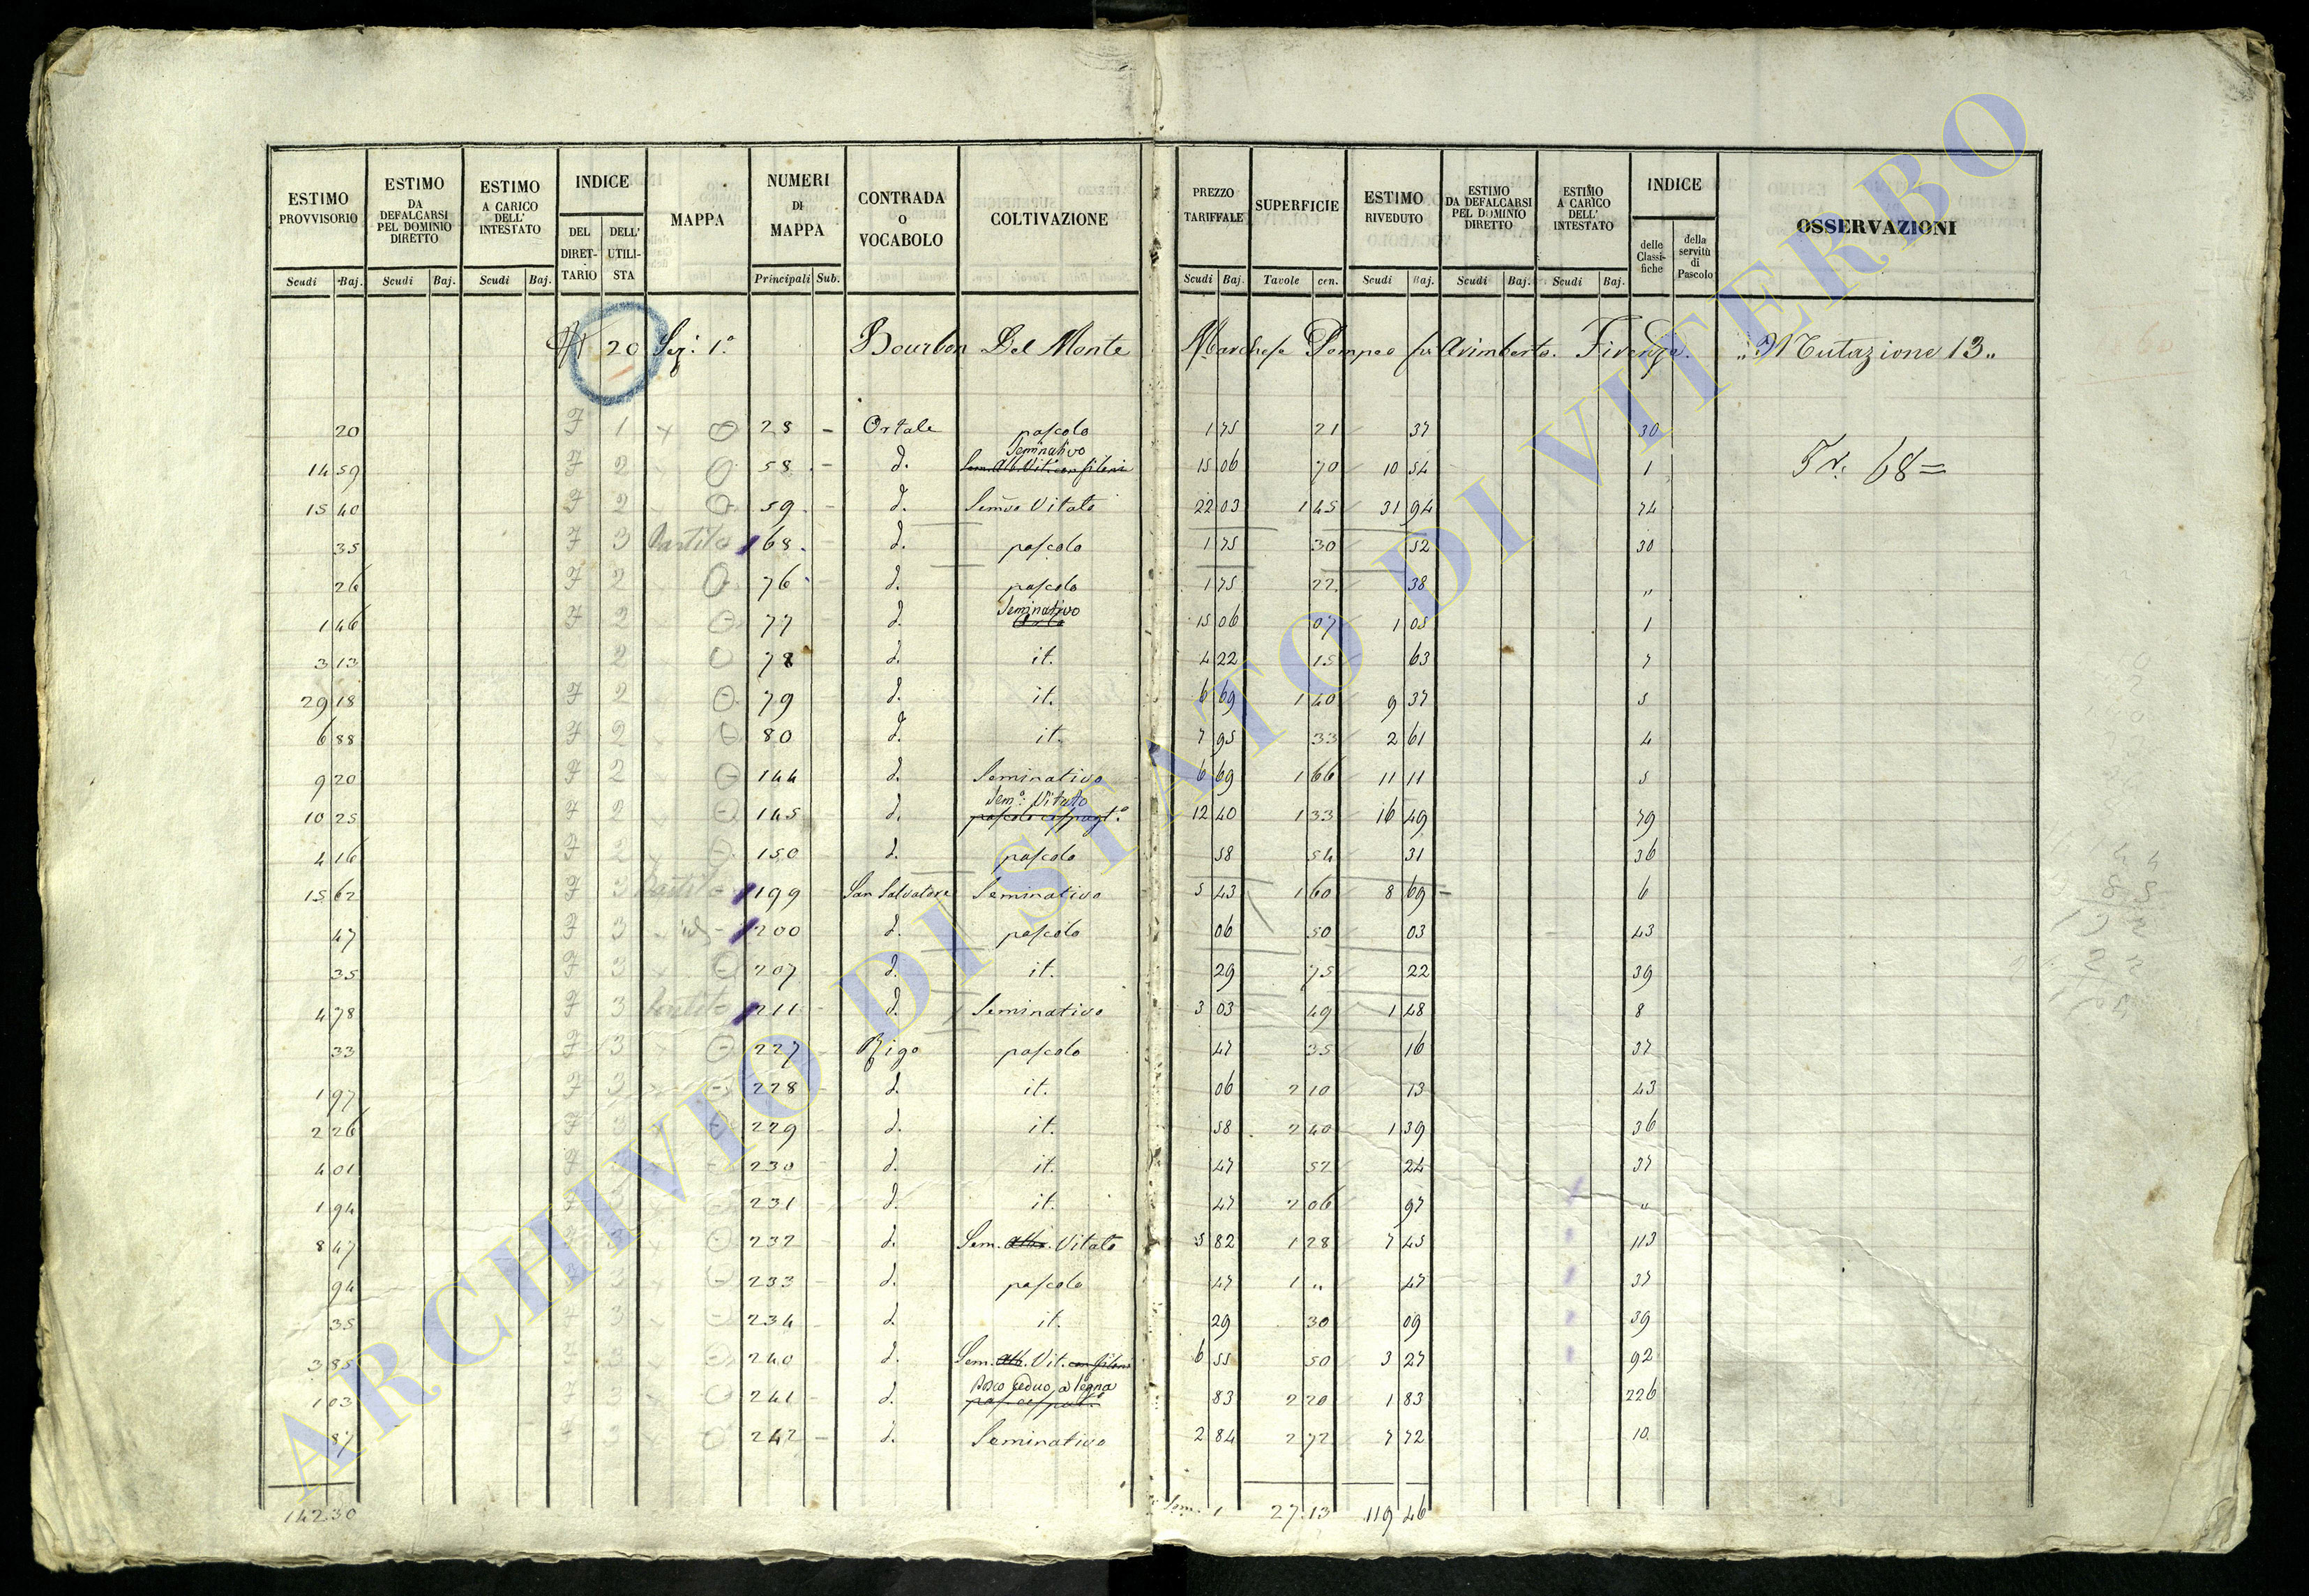 ESTIMO PROVVISORIO Scudi Baj. ESTIMO DA DEFALCARSI PEL DOMINIO DIRETTO Scudi Baj. ESTIMO A CARICO DELL' INTESTATO Scudi Baj. INDICE DEL DIRETTARIO DELL' UTILISTA MAPPA NUMERI DI MAPPA Principali Sub. CONTRADA O VOCABOLO COLTIVAZIONE PREZZO TARIFFALE Scudi Baj. SUPERFICIE Tavole cen. ESTIMO RIVEDUTO Scudi Baj. ESTIMO DA DEFALCARSI PEL DOMINIO DIRETTO Scudi Baj. ESTIMO A CARICO DELL' INTESTATO Scudi Baj. INDICE delle Classifiche della servitù di Pascolo OSSERVAZIONI
20 Sez. 1.a Bourbon Del Monte Marchese Pompeo fu Arimberto. Firenze. Mutazione 13
20 1 28 - Ortale pascolo 1 75 21 37 30
Seminativo
14 59 2 58 - d. Sem. Alb. Vit. con filoni 15 06 70 10 54 1 68=
15 40 2 59 - d. Semvo Vitato 22 03 1 45 31 94 74
35 3 Partita 68 d. pascolo 1 75 30 52 30
26 2 76 - d. pascolo 1 75 22 38 "
Seminativo
1 46 2 77 - d. 15 06 07 1 05 1
3 13 2 78 d. it. 4 22 15 63 7
29 18 2 79 - d. it. 6 69 1 40 9 37 5
6 88 2 80 d. it. 7 95 33 2 61 4
9 20 2 144 - d. Seminativo 6 69 1 66 11 11 5
Sem.o Vitato
10 25 2 145 - d. 12 40 1 33 16 49 79
4 16 2 150 - d. pascolo 58 54 31 36
15 62 3 Partita 199 - San Salvatore Seminativo 5 43 1 60 8 69 6
47 3 200 d. pascolo 06 50 03 43
35 3 207 - d. it. 29 75 22 39
4 78 3 Partita 211 - d. Seminativo 3 03 49 1 48 8
33 3 227 - Rigo pascolo 47 35 16 37
1 97 3 228 - d. it. 06 2 10 13 43
2 26 3 229 - d. it. 58 2 40 1 39 36
4 01 230 - d. it. 47 52 24 37
1 94 231 - d. it. 47 2 06 97 "
8 47 3 232 - d. Sem. Alb. Vitato 5 82 1 28 7 45 113
94 3 233 - d. pascolo 47 1 " 47 37
35 3 234 - d. it. 29 30 09 39
3 85 3 240 - d. Sem. Alb. Vit. con filoni 6 55 50 3 27 92
Bosco Ceduo a legna
1 03 3 241 - d. 83 2 20 1 83 226
87 3 242 - d. Seminativo 2 84 2 72 7 72 10
142 30 27 13 119 46
ARCHIVIO DI STATO DI VITERBO